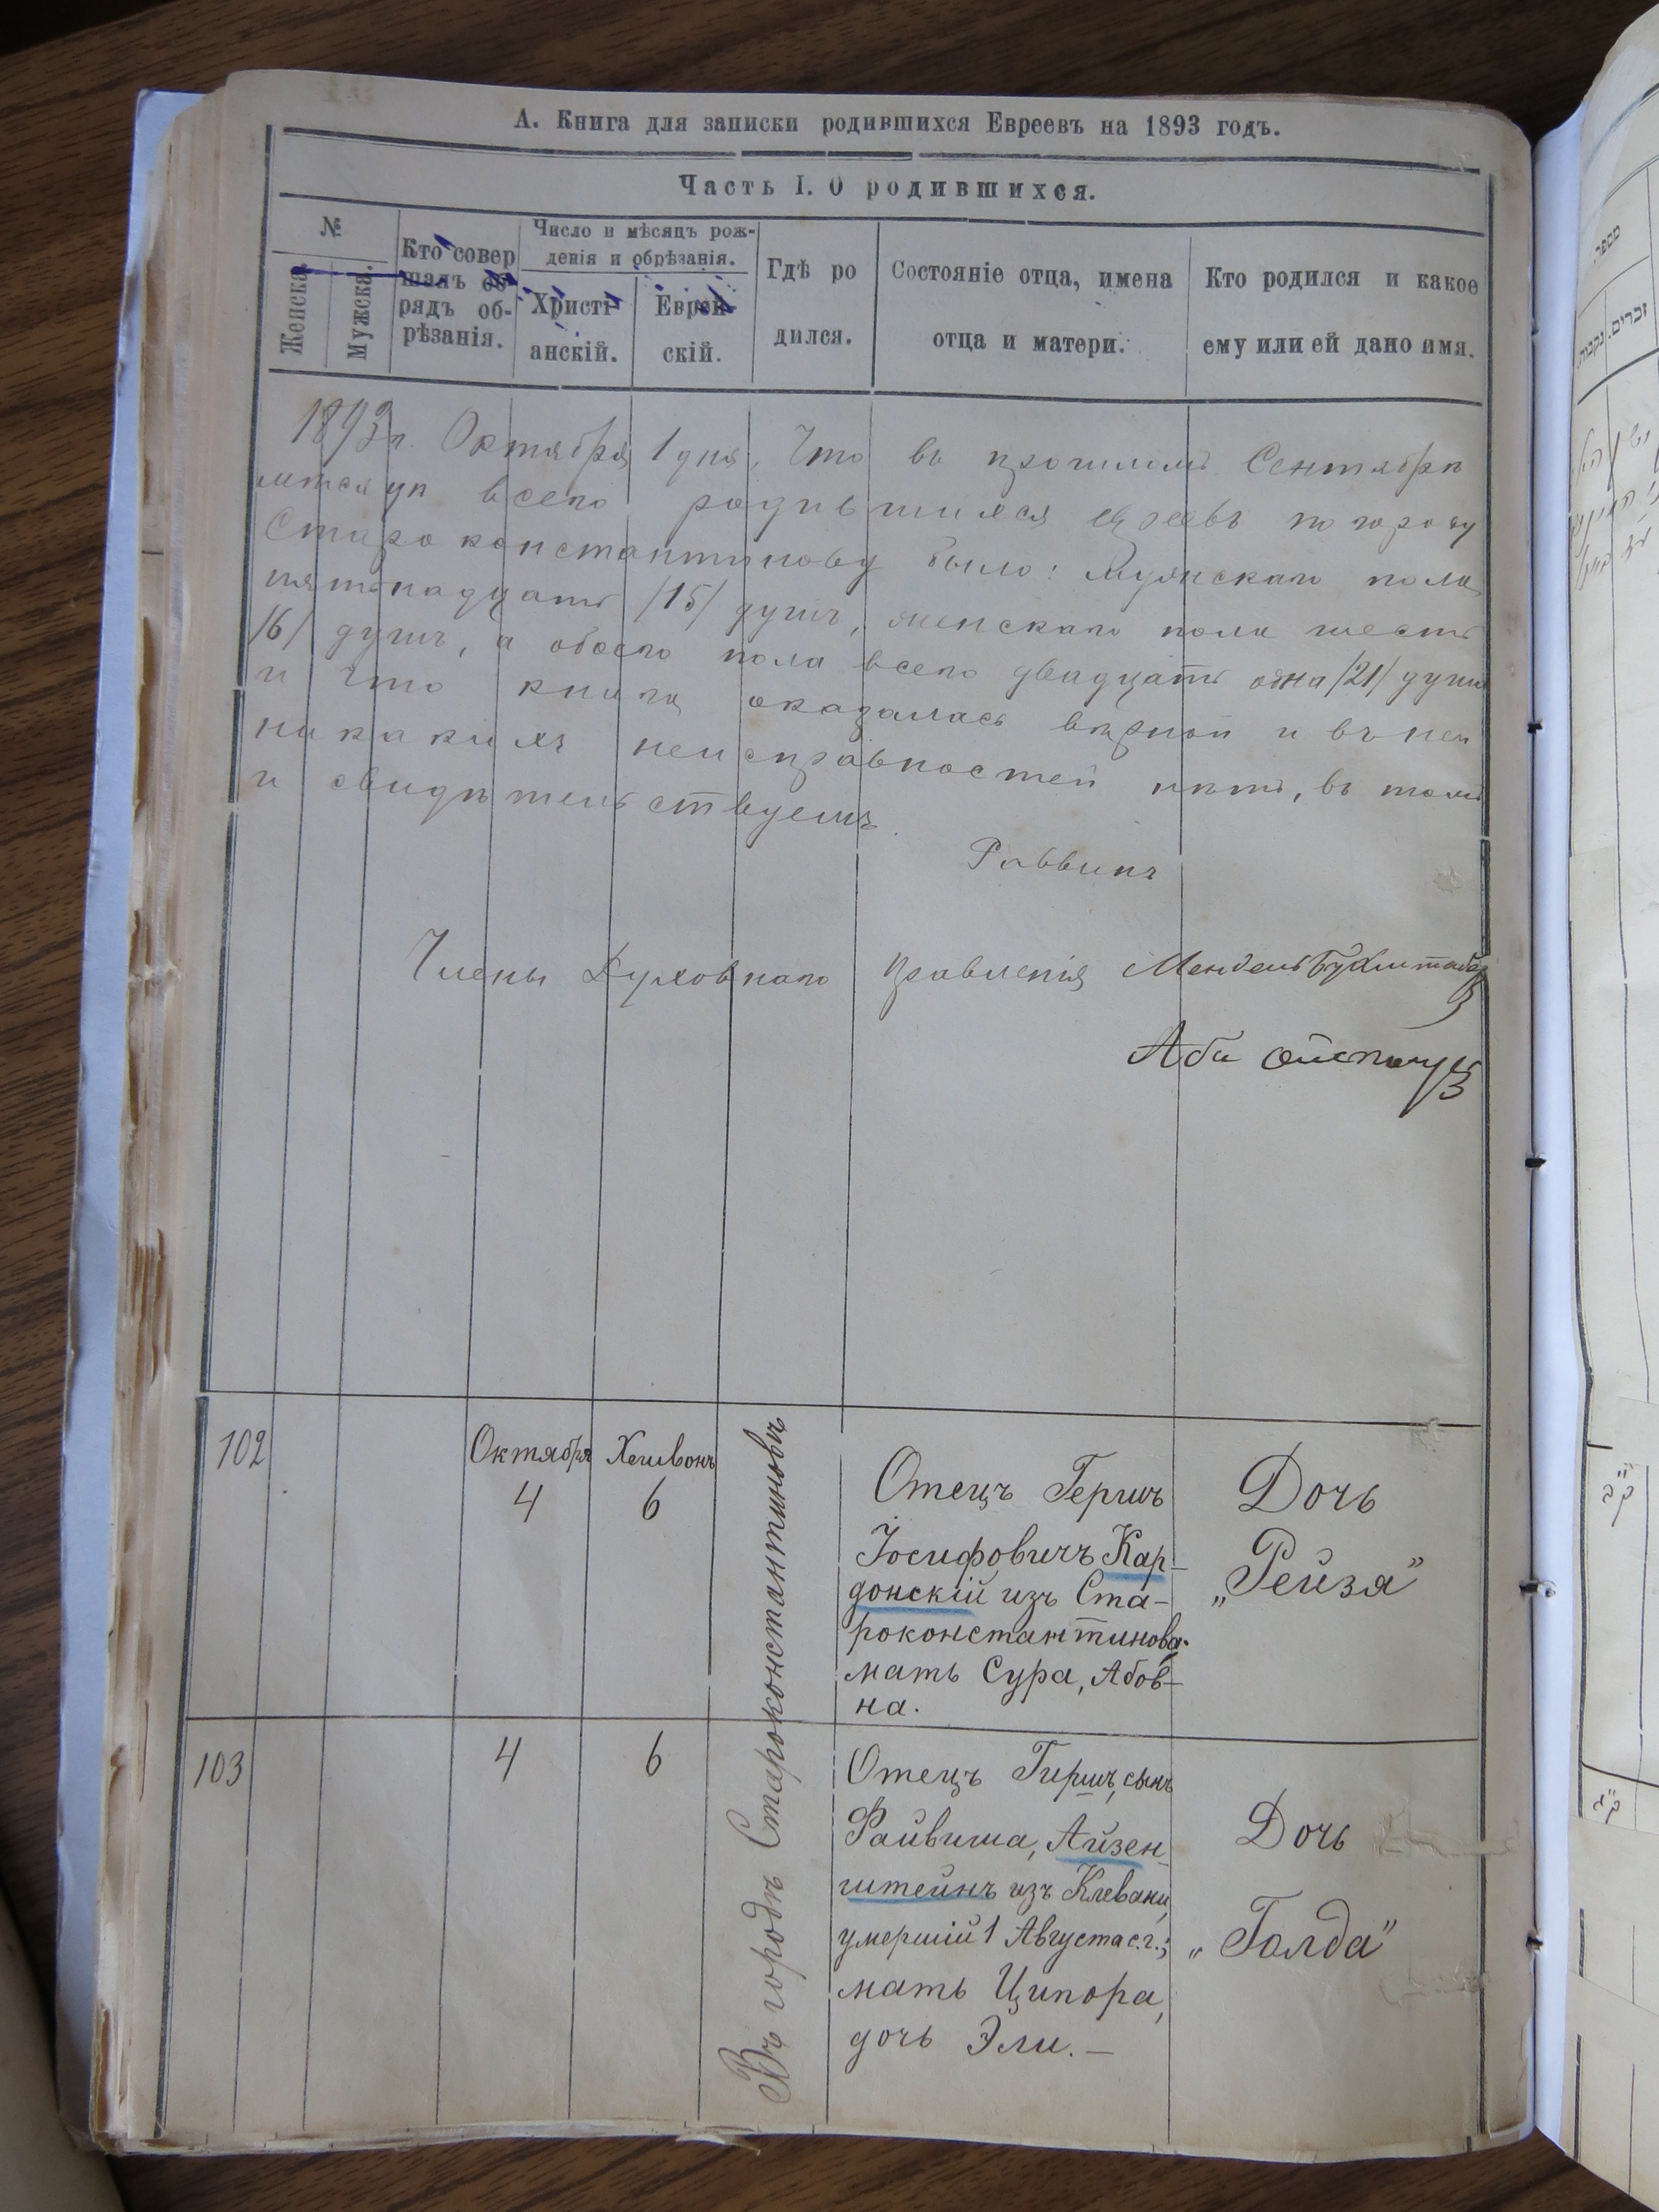 А. Книга для записки родившихся Евреевъ на 1893 годъ.
Часть I. О родившихся.
№
Женска.
Мужска.
Кто совер
шалъ об-
рядъ об-
рѣзанія.
Число и мѣсяцъ рож-
денія и обрѣзанія.
Христі-
анскій.
Еврей-
скій.
Гдѣ ро
дился.
Состояніе отца, имена
отца и матери.
Кто родился и какое
ему или ей дано имя.
1893 г. Октября 1 дня, Что въ прошломъ Сентябрѣ
мѣсяцѣ всего родившихся евреевъ по городу
Староконстантинову было: мужскаго пола
пятнадцать /15/ душъ, женскаго пола шесть
/6/ душъ, а обоего пола всего двадцать одна /21/ душа
и что книга оказалась вѣрной и въ ней
никакихъ неисправностей нѣтъ, въ томъ
и свидѣтельствуемъ.
Раввинъ
Члены Духовнаго правленія Мендель
Аба
102
Октября
4
Хешвонъ
6
Въ городѣ Староконстантиновѣ
Отецъ Гершъ
Іосифовичъ Кар-
донскій изъ Ста-
роконстантинова.
мать Сура, Абов-
на.
Дочь
„Рейзя"
103
4
6
Отецъ Гиршъ, сынъ
Файвиша, Айзен-
штейнъ изъ Клевани,
умершій 1 Августа с.г.;
мать Ципора,
дочь Эли. —
Дочь
„Голда"
מספר
זכרים.
נקבות.
ק"ב
ק"ג